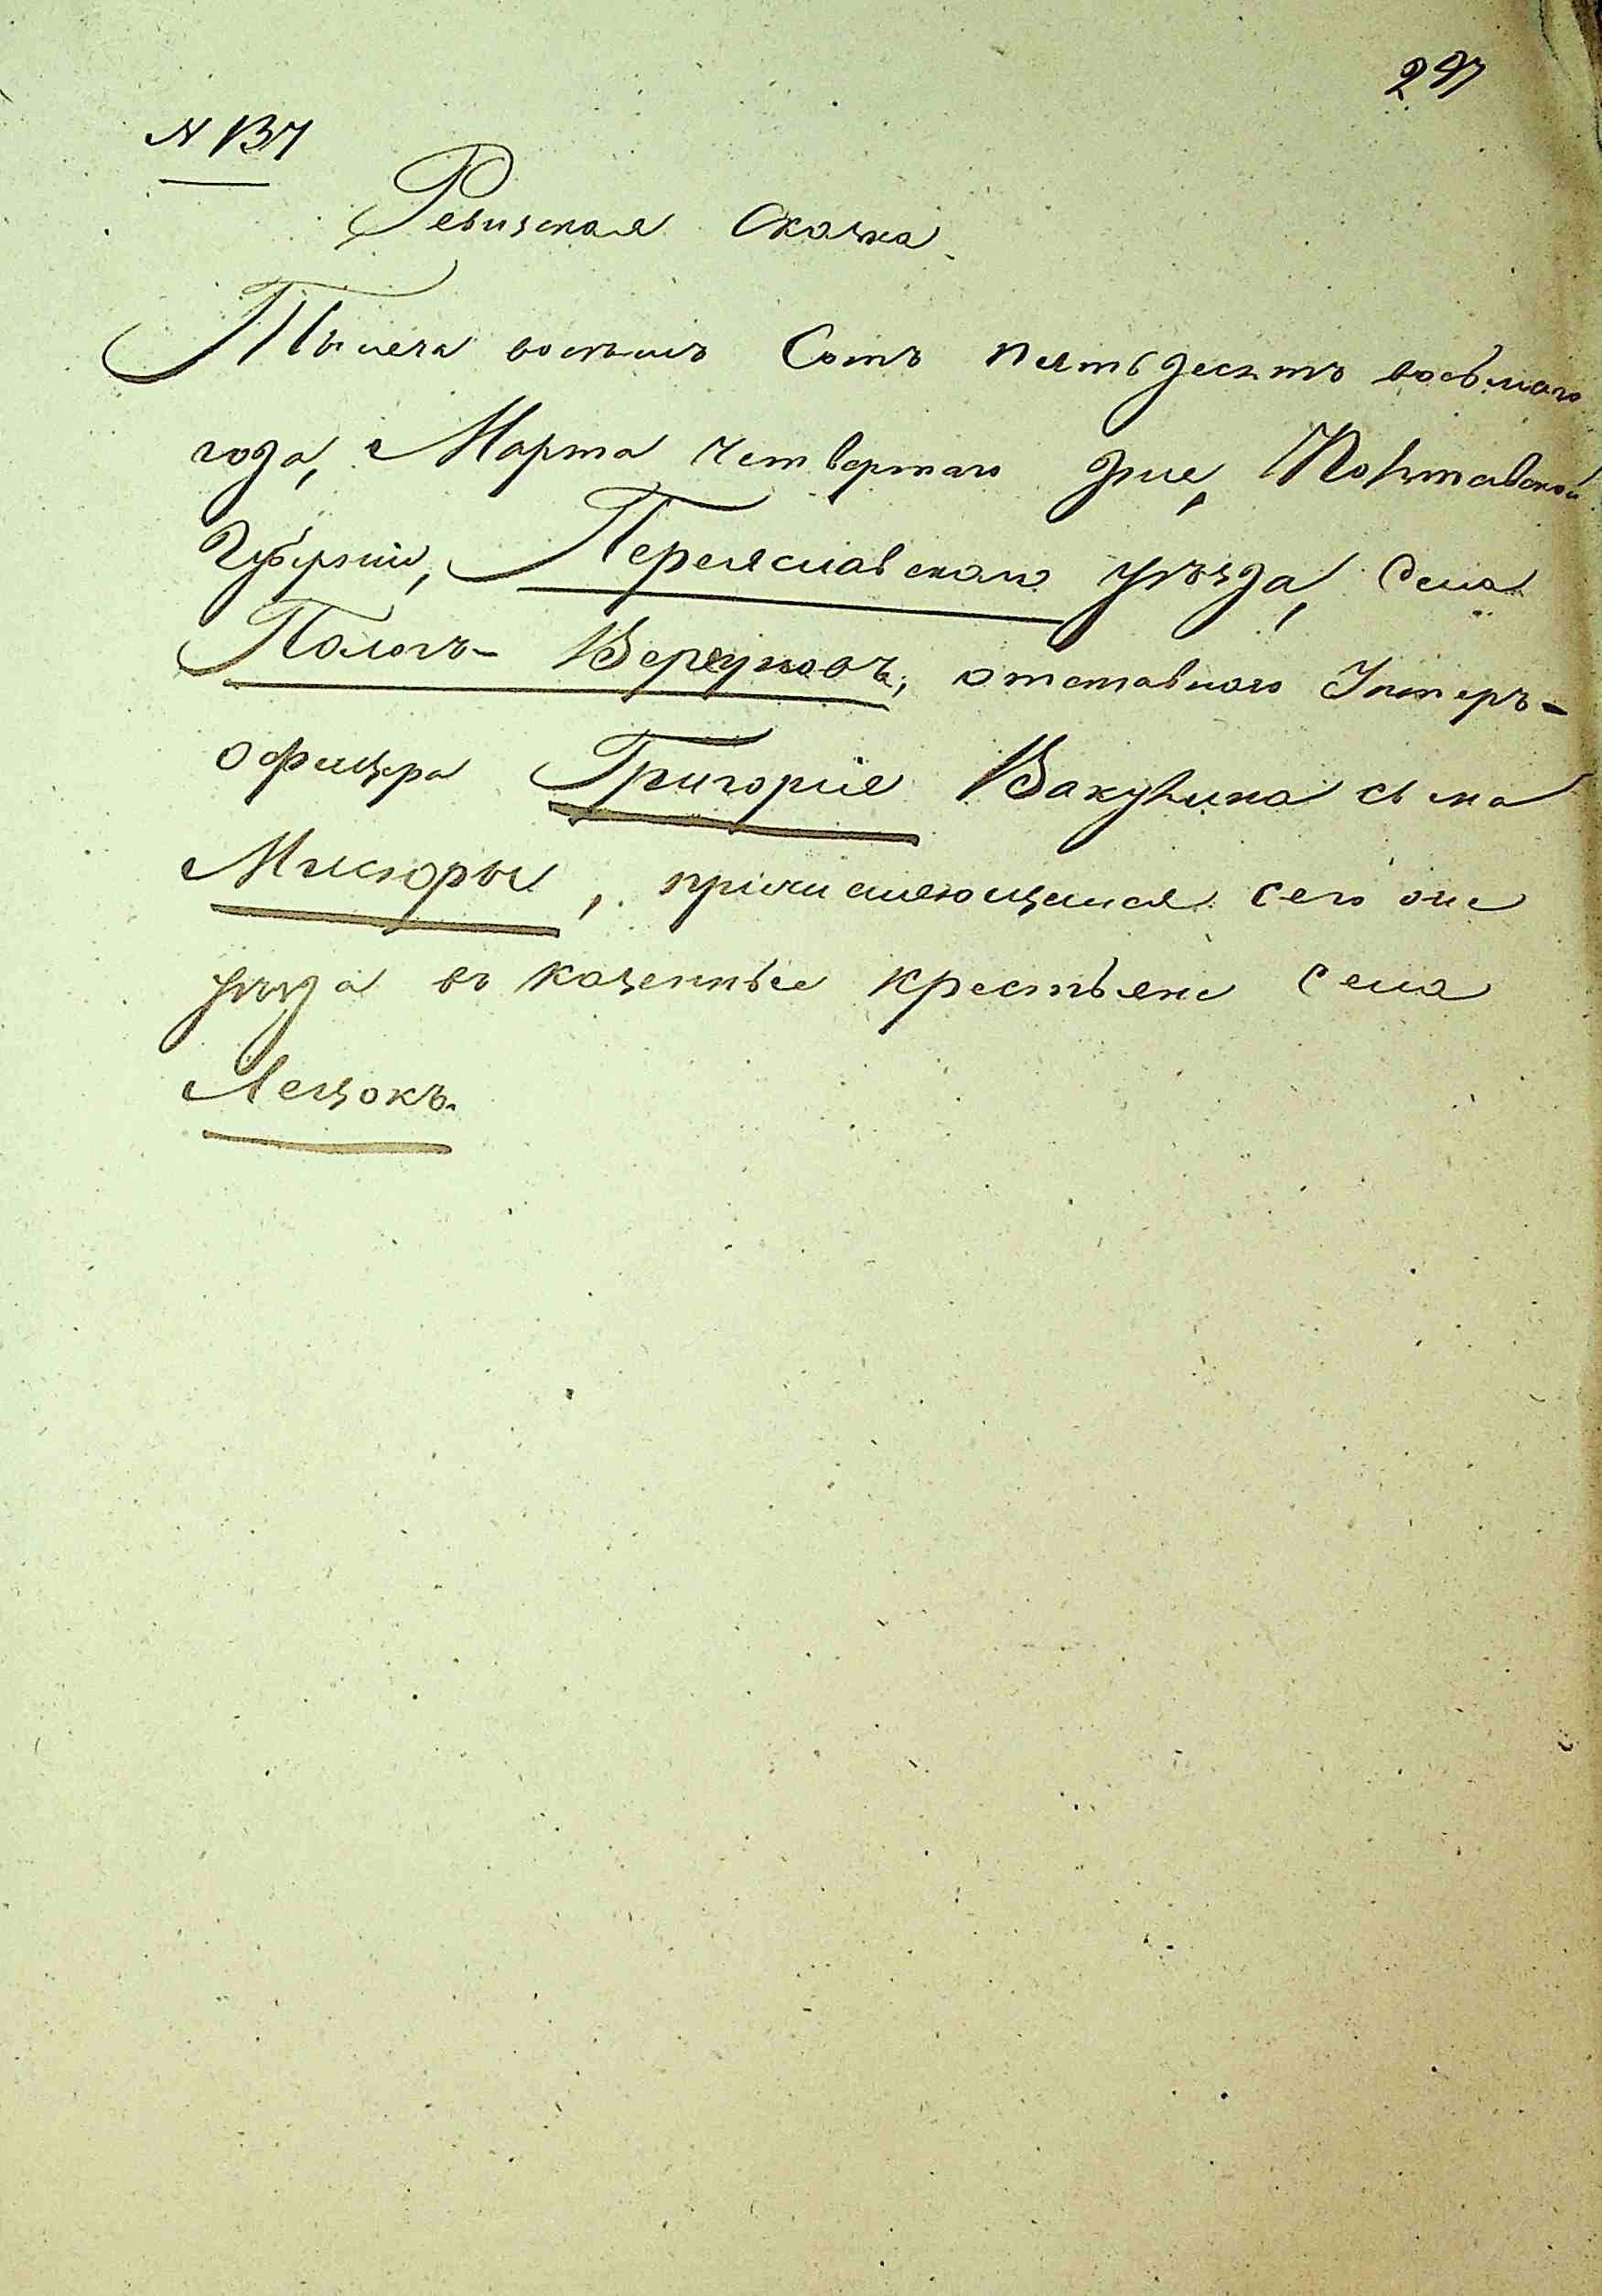 297
№ 137
Ревизская Сказка
Тысяча восемь Сотъ пятьдесятъ восьмого
года, Марта четвертаго дня, Полтавской
Губерніи, Переяславскаго уѣзда, Села
Пологъ-Вергуновъ, отставнаго Унтеръ-
офицера Григорія Вакулина сына
Мисюры, причисляющагося сего же
уѣзда въ казенные крестьяне села
Лецокъ.